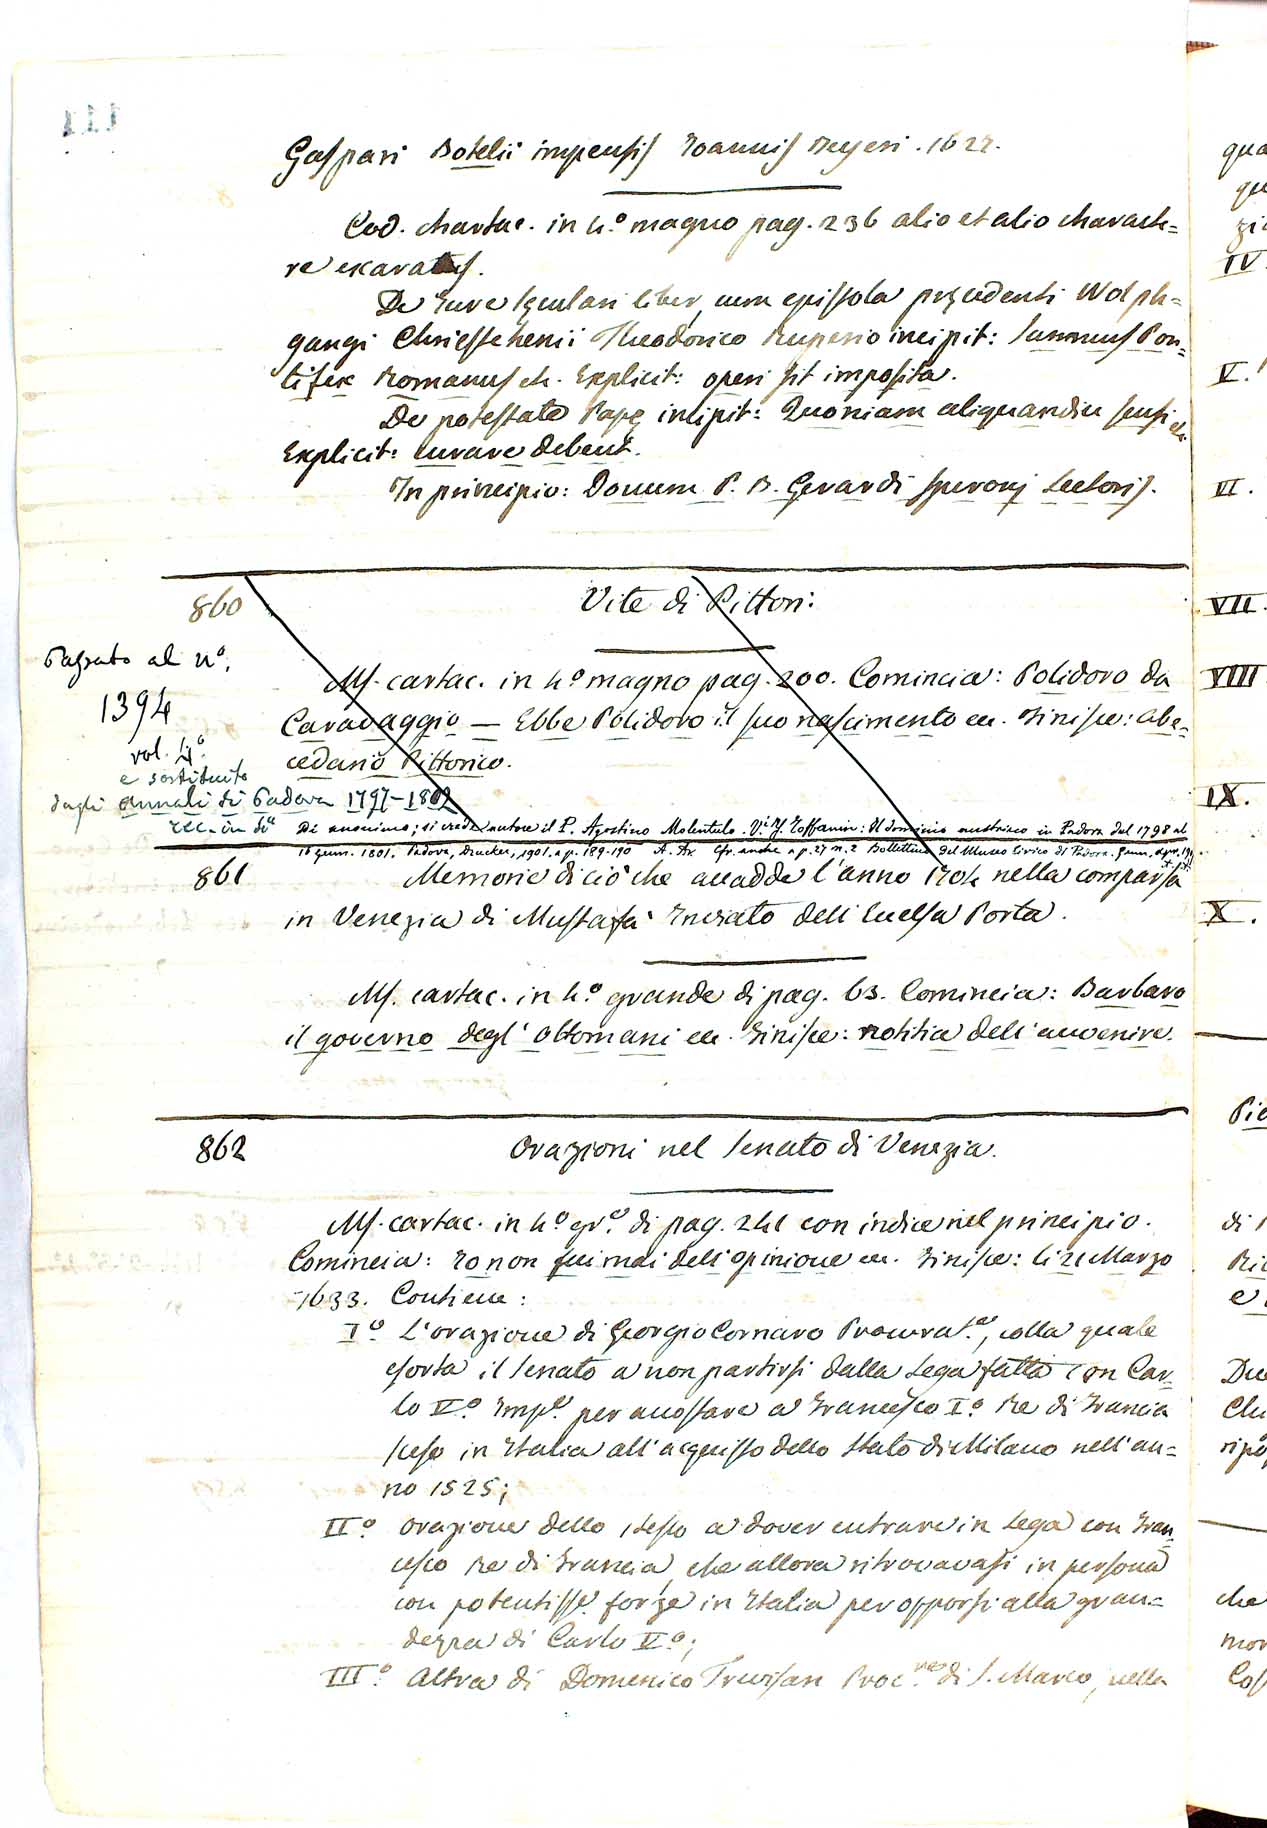 Gaspari Botelii impensis Ioannis Meyeri. 1622.
Cod. chartac. in 4.º magno pag. 236 alio et alio charachte=
re exaratus.
De Iure seculari liber, cum epistola precedenti Wolph=
gangi Theodorico incipit: Summus Pon=
tifex Romanus etc. Explicit: operi sit imposita.
De potestate Papę incipit: Quoniam aliquandiu sensi etc.
Explicit: curare debent.
In principio: Donum P. D. Gerardi Speronj Lectoris.
860 Vite di Pittori:
Passato al nº.
1394
vol. 4º
e sostituito
dagli Annali di Padova 1797-1802
Ms. cartac. in 4º magno pag. 200. Comincia: Polidoro da
Caravaggio — Ebbe Polidoro il suo nascimento ec. Finisce: Abe=
cedario Pittorico.
Di anonimo; si crede autore il P. Agostino Molentulo. V. Toffanin: Il dominio austriaco in Padova dal 1798 al
16 genn. 1801. Padova, Drucker, 1901, a p. 189-190 Cfr. anche a p. 27 n. 2 Bollettino del Museo Civico di Padova. Genn.
861 Memorie di ciò che accadde l'anno 1704 nella comparsa
in Venezia di Mustafà Inviato dell'Eccelsa Porta.
Ms. cartac. in 4.º grande di pag. 63. Comincia: Barbaro
il governo degl'Ottomani ec. Finisce: notitia dell'auvenire.
862 Orazioni nel Senato di Venezia.
Ms. cartac. in 4.º gr.e di pag. 241 con indice nel principio.
Comincia: Io non fui mai dell'opinione ec. Finisce: li 21 Marzo
1633. Contiene:
I.º L'orazione di Georgio Cornaro Procura.r, colla quale
esorta il Senato a non partirsi dalla Lega fatta con Car=
lo V.º Imp.e per accostare a Francesco I.º Re di Francia
sceso in Italia all'acquisto dello Stato di Milano nell'an=
no 1525;
II.º Orazione dello stesso a dover entrare in Lega con Fran=
cesco Re di Francia, che allora ritrovavasi in persona
con potentiss.e forze in Italia per opporsi alla gran=
dezza di Carlo V.º;
III.º Altra di Domenico Trevisan Proc.re di S. Marco, nella
IV.
V.
VI.
VII.
VIII
IX.
X.